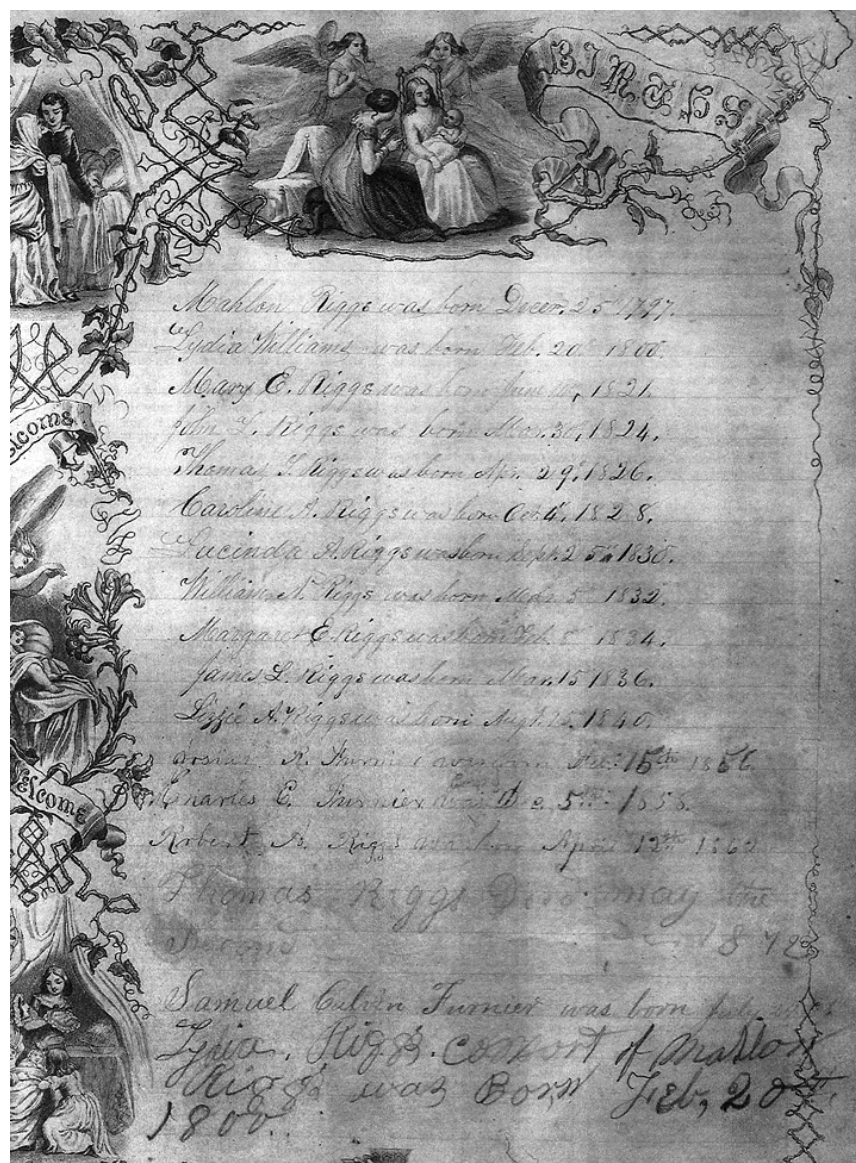 BIRTHS
Mahlon Riggs was born Decem. 25th 1797.
Lydia Williams was born Feb. 20th 1800.
Mary E. Riggs was born June 10, 1821.
John L. Riggs was born Mar. 30, 1824.
Thomas I. Riggs was born Apr. 29th 1826.
Caroline A. Riggs was born Oct. 4, 1828.
Welcome
Lucinda A. Riggs was born Sept. 25th 1830.
William N. Riggs was born Mar 5th 1832.
Margaret E. Riggs was born Feb. 8 1834.
James L. Riggs was born Mar. 15 1836.
Lizzie A. Riggs was born Augt. 1840.
R. Furnier was born 15th 1856
Welcome
Charles E. Furnier was Born 5th 1858
Robert A. Riggs was born April 12th 1862
Thomas Riggs Died may the
Second 1872
Samuel Calvin Furnier was born July
Lydia. Riggs. consort of Mahlon
Riggs was Born Feb, 20th,
1800.